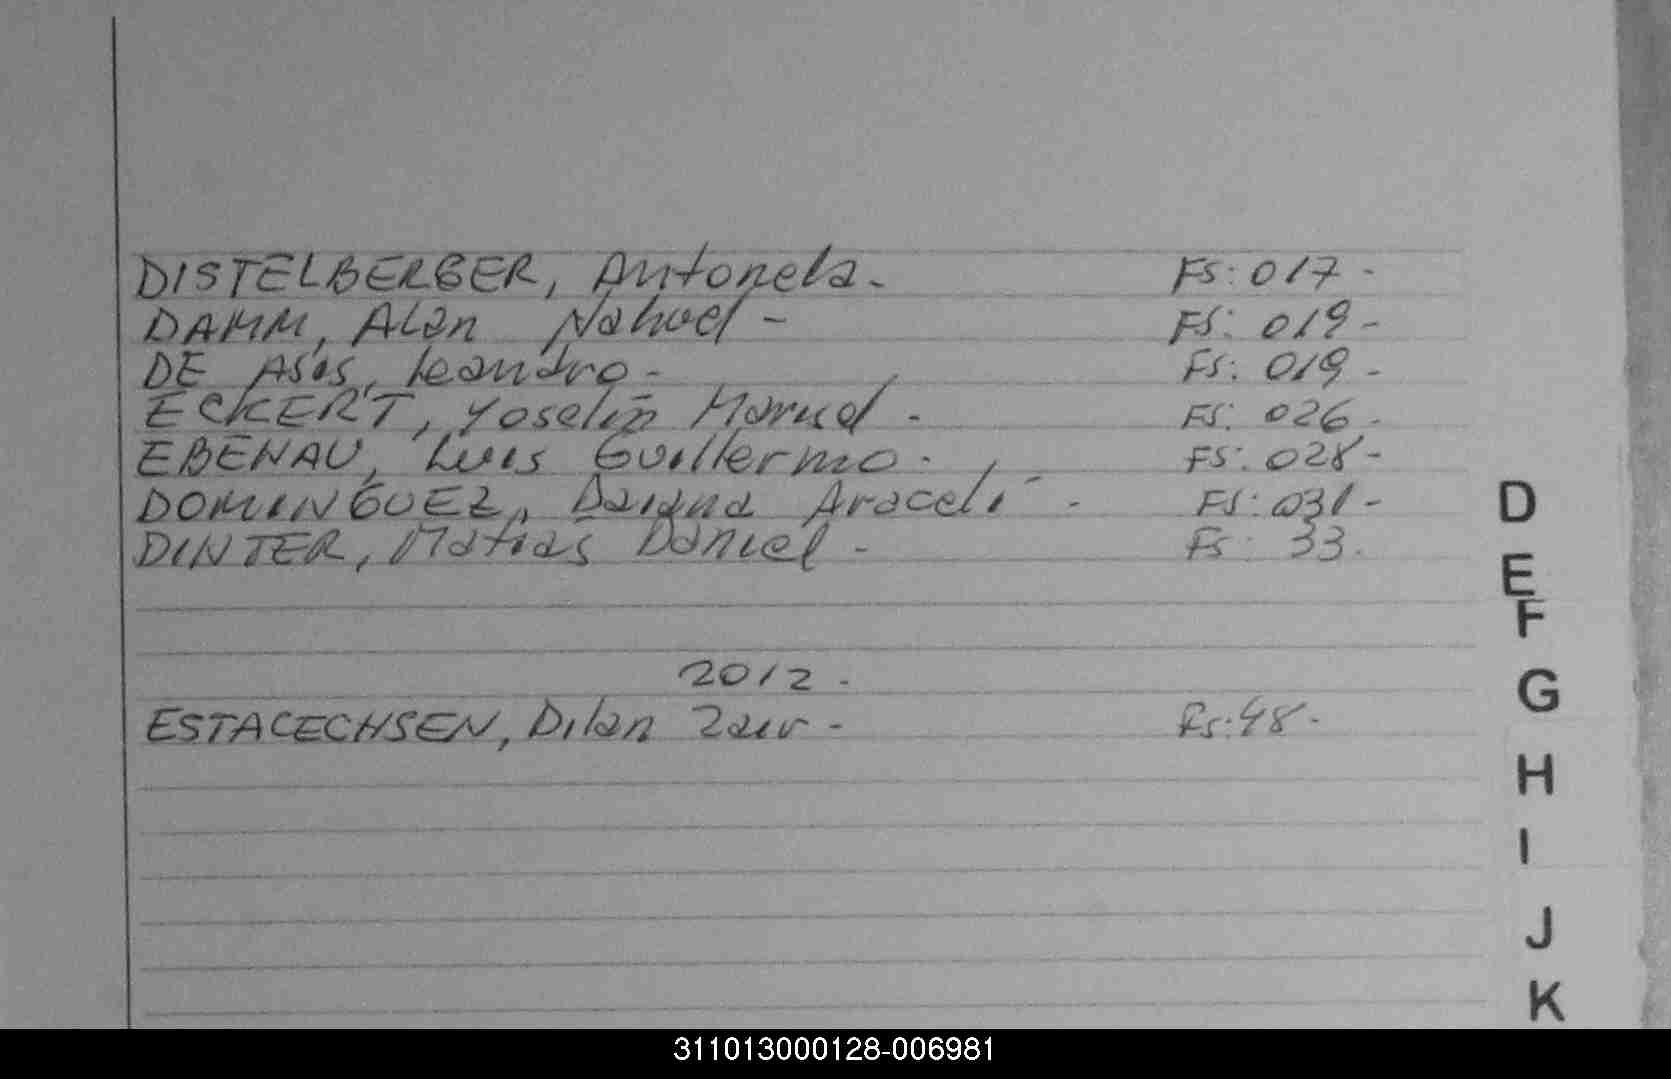 DISTELBERGER, Antonela. FS: 017 -
DAMM, Alan Nahuel - FS: 019 -
DE Asís, Leandro - FS: 019 -
ECKERT, Yoselin Maruel - FS: 026 -
EBENAU, Luis Guillermo - FS: 028 -
DOMINGUEZ, Daiana Araceli - FS: 031 -
DINTER, Matias Daniel - Fs: 33.
2012 -
ESTACECHSEN, Dilan - Fs: 48 -
D
E
F
G
H
I
J
K
311013000128-006981